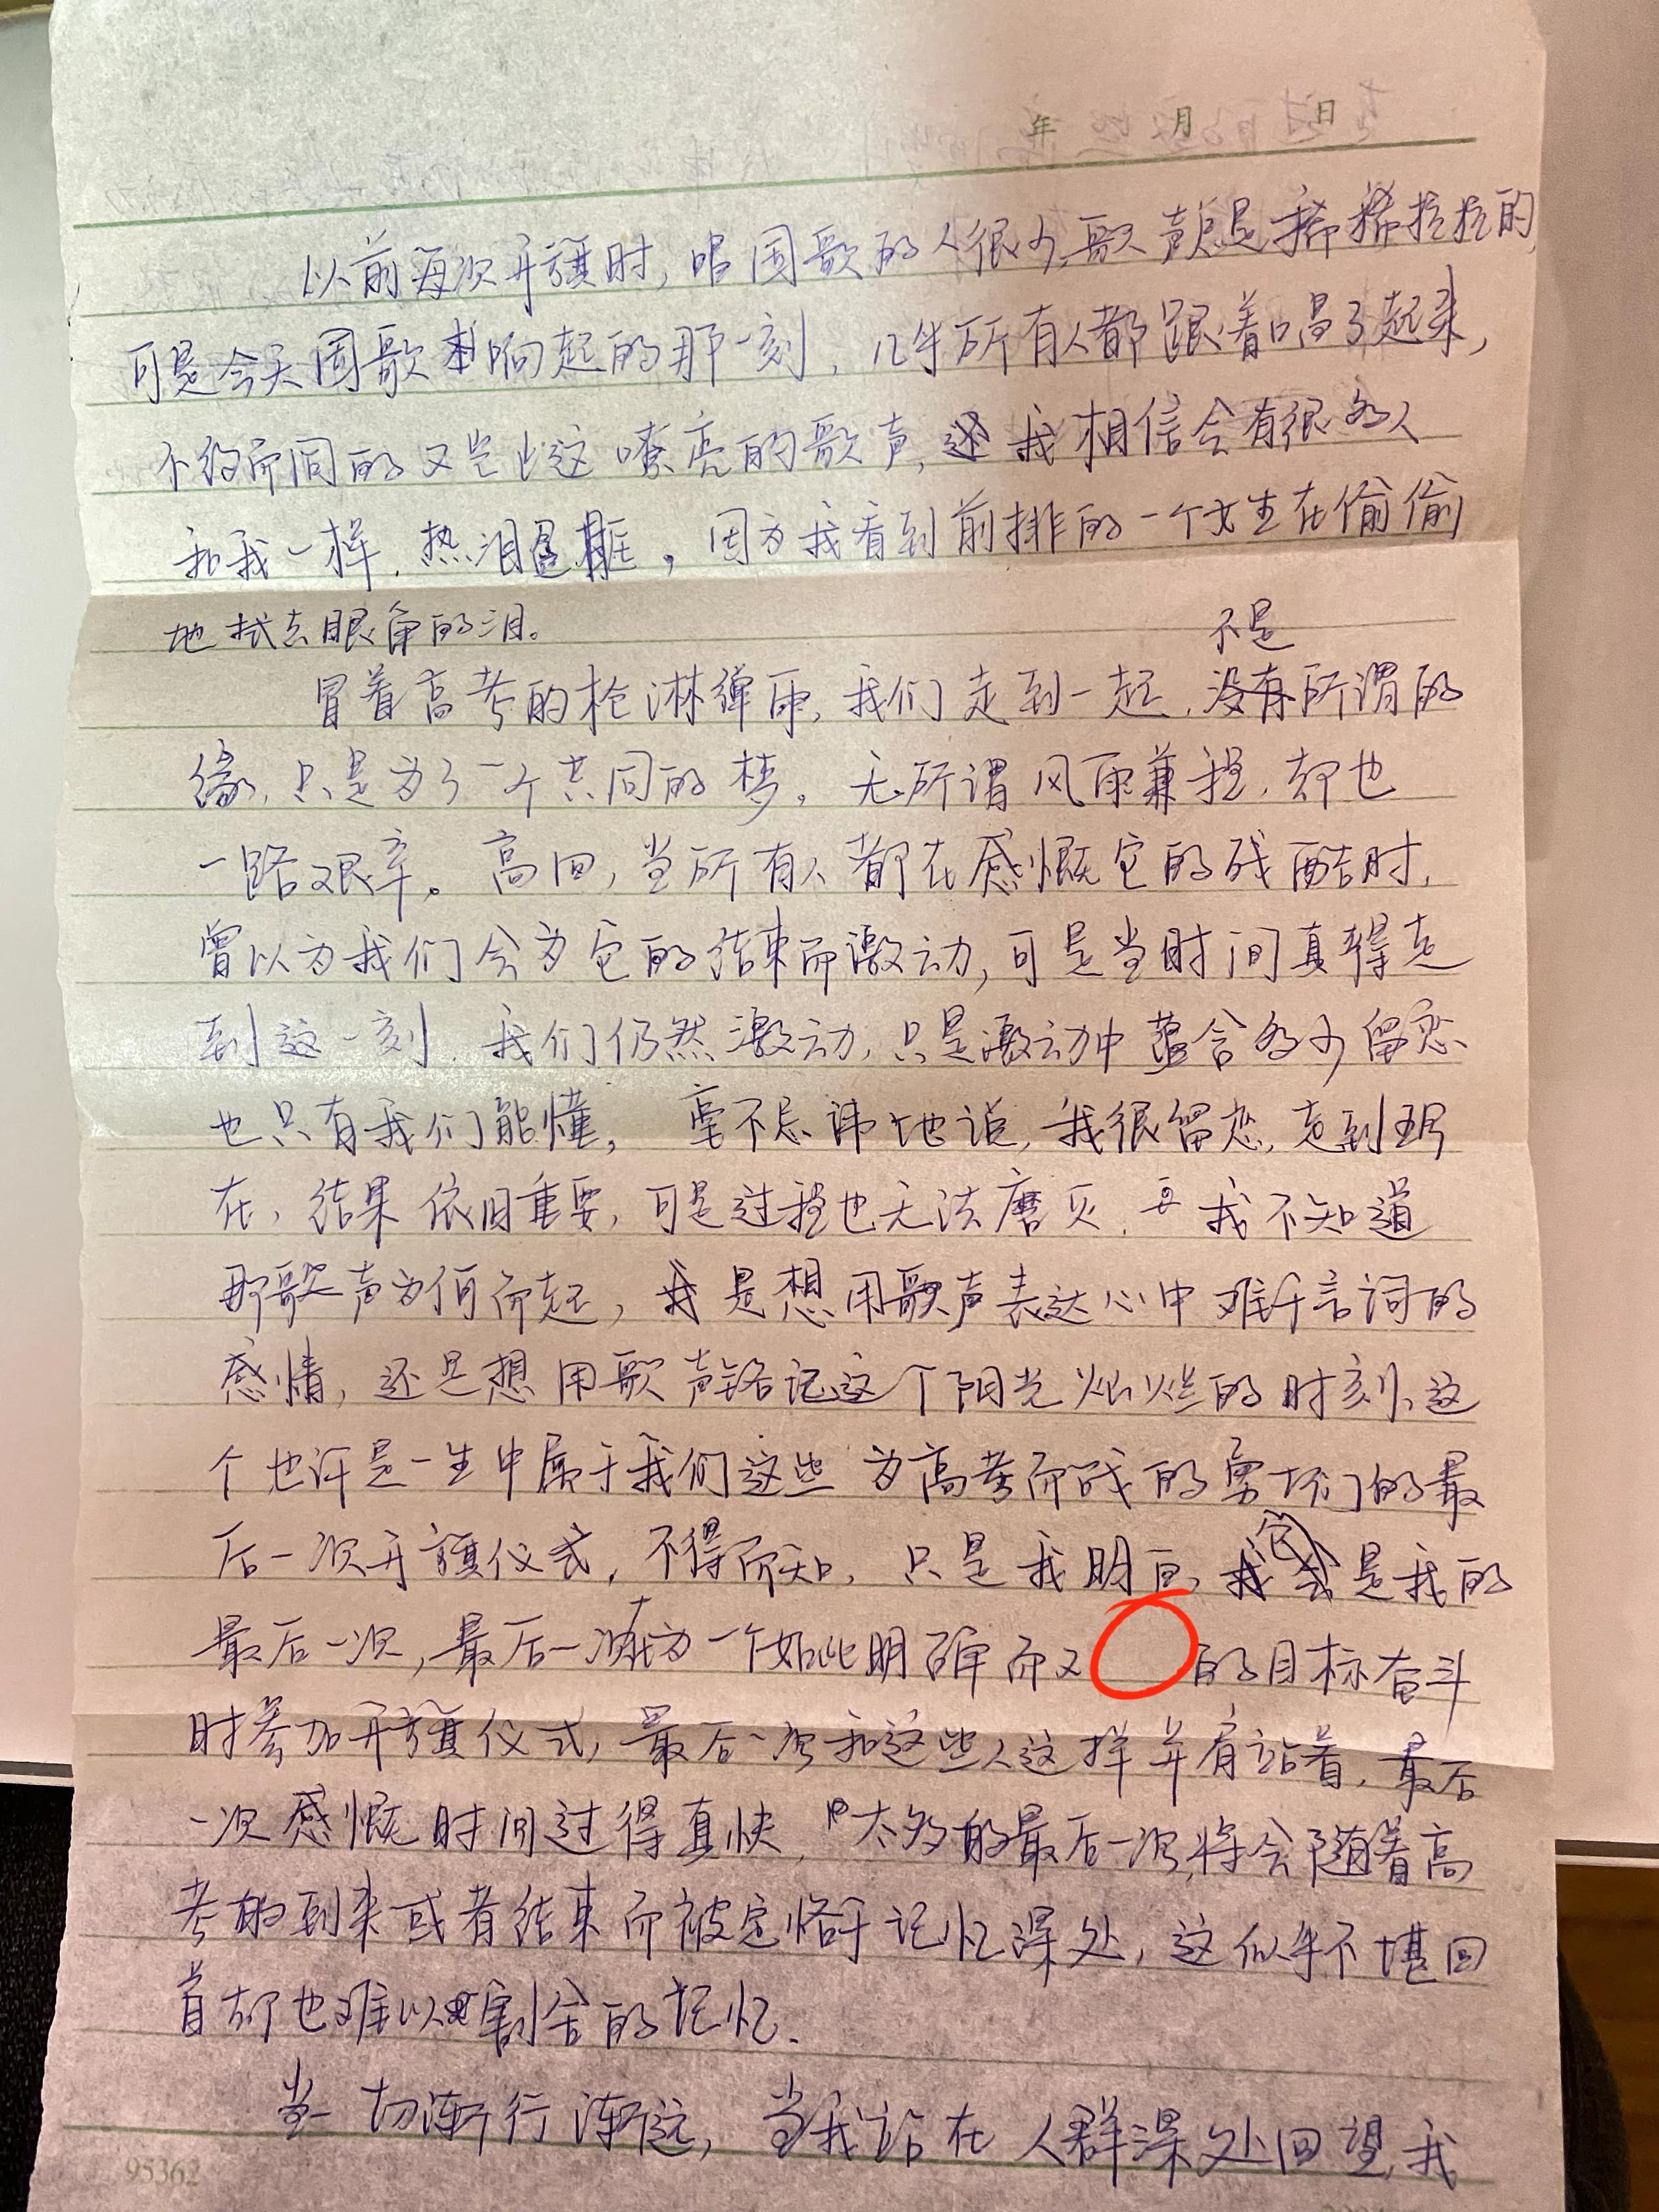 年 月 日
以前每次升旗时,唱国歌的人很少,歌声总是稀稀拉拉的,
可是今天国歌响起的那一刻,几乎所有人都跟着唱了起来,
不约而同的又岂止这嘹亮的歌声,我相信会有很多人
和我一样,热泪盈眶。因为我看到前排的一个女生在偷偷
地拭去眼角的泪。
不是
冒着高考的枪淋弹雨,我们走到一起,没有所谓的
缘,只是为了一个共同的梦。无所谓风雨兼程,却也
一路艰辛。高四,当所有人都在感慨它的残酷时,
曾以为我们会为它的结束而激动,可是当时间真得走
到这一刻,我们仍然激动,只是激动中蕴含多少留恋
也只有我们能懂。毫不忌讳地说,我很留恋,走到现
在,结果依旧重要,可是过程也无法磨灭,我不知道
那歌声为何而起,我是想用歌声表达心中难于言词的
感情,还是想用歌声铭记这个阳光灿烂的时刻、这
个也许是一生中属于我们这些为高考而战的勇士们的最
后一次升旗仪式,不得而知,只是我明白,这会是我的
最后一次,最后一次在为一个如此明确而又 的目标奋斗
时参加升旗仪式,最后一次和这些人这样并肩站着,最后
一次感慨时间过得真快,太多的最后一次,将会随着高
考的到来或者结束而被定格于记忆深处,这似乎不堪回
首却也难以割舍的记忆.
当一切渐行渐远,当我站在人群深处回望,我
95362